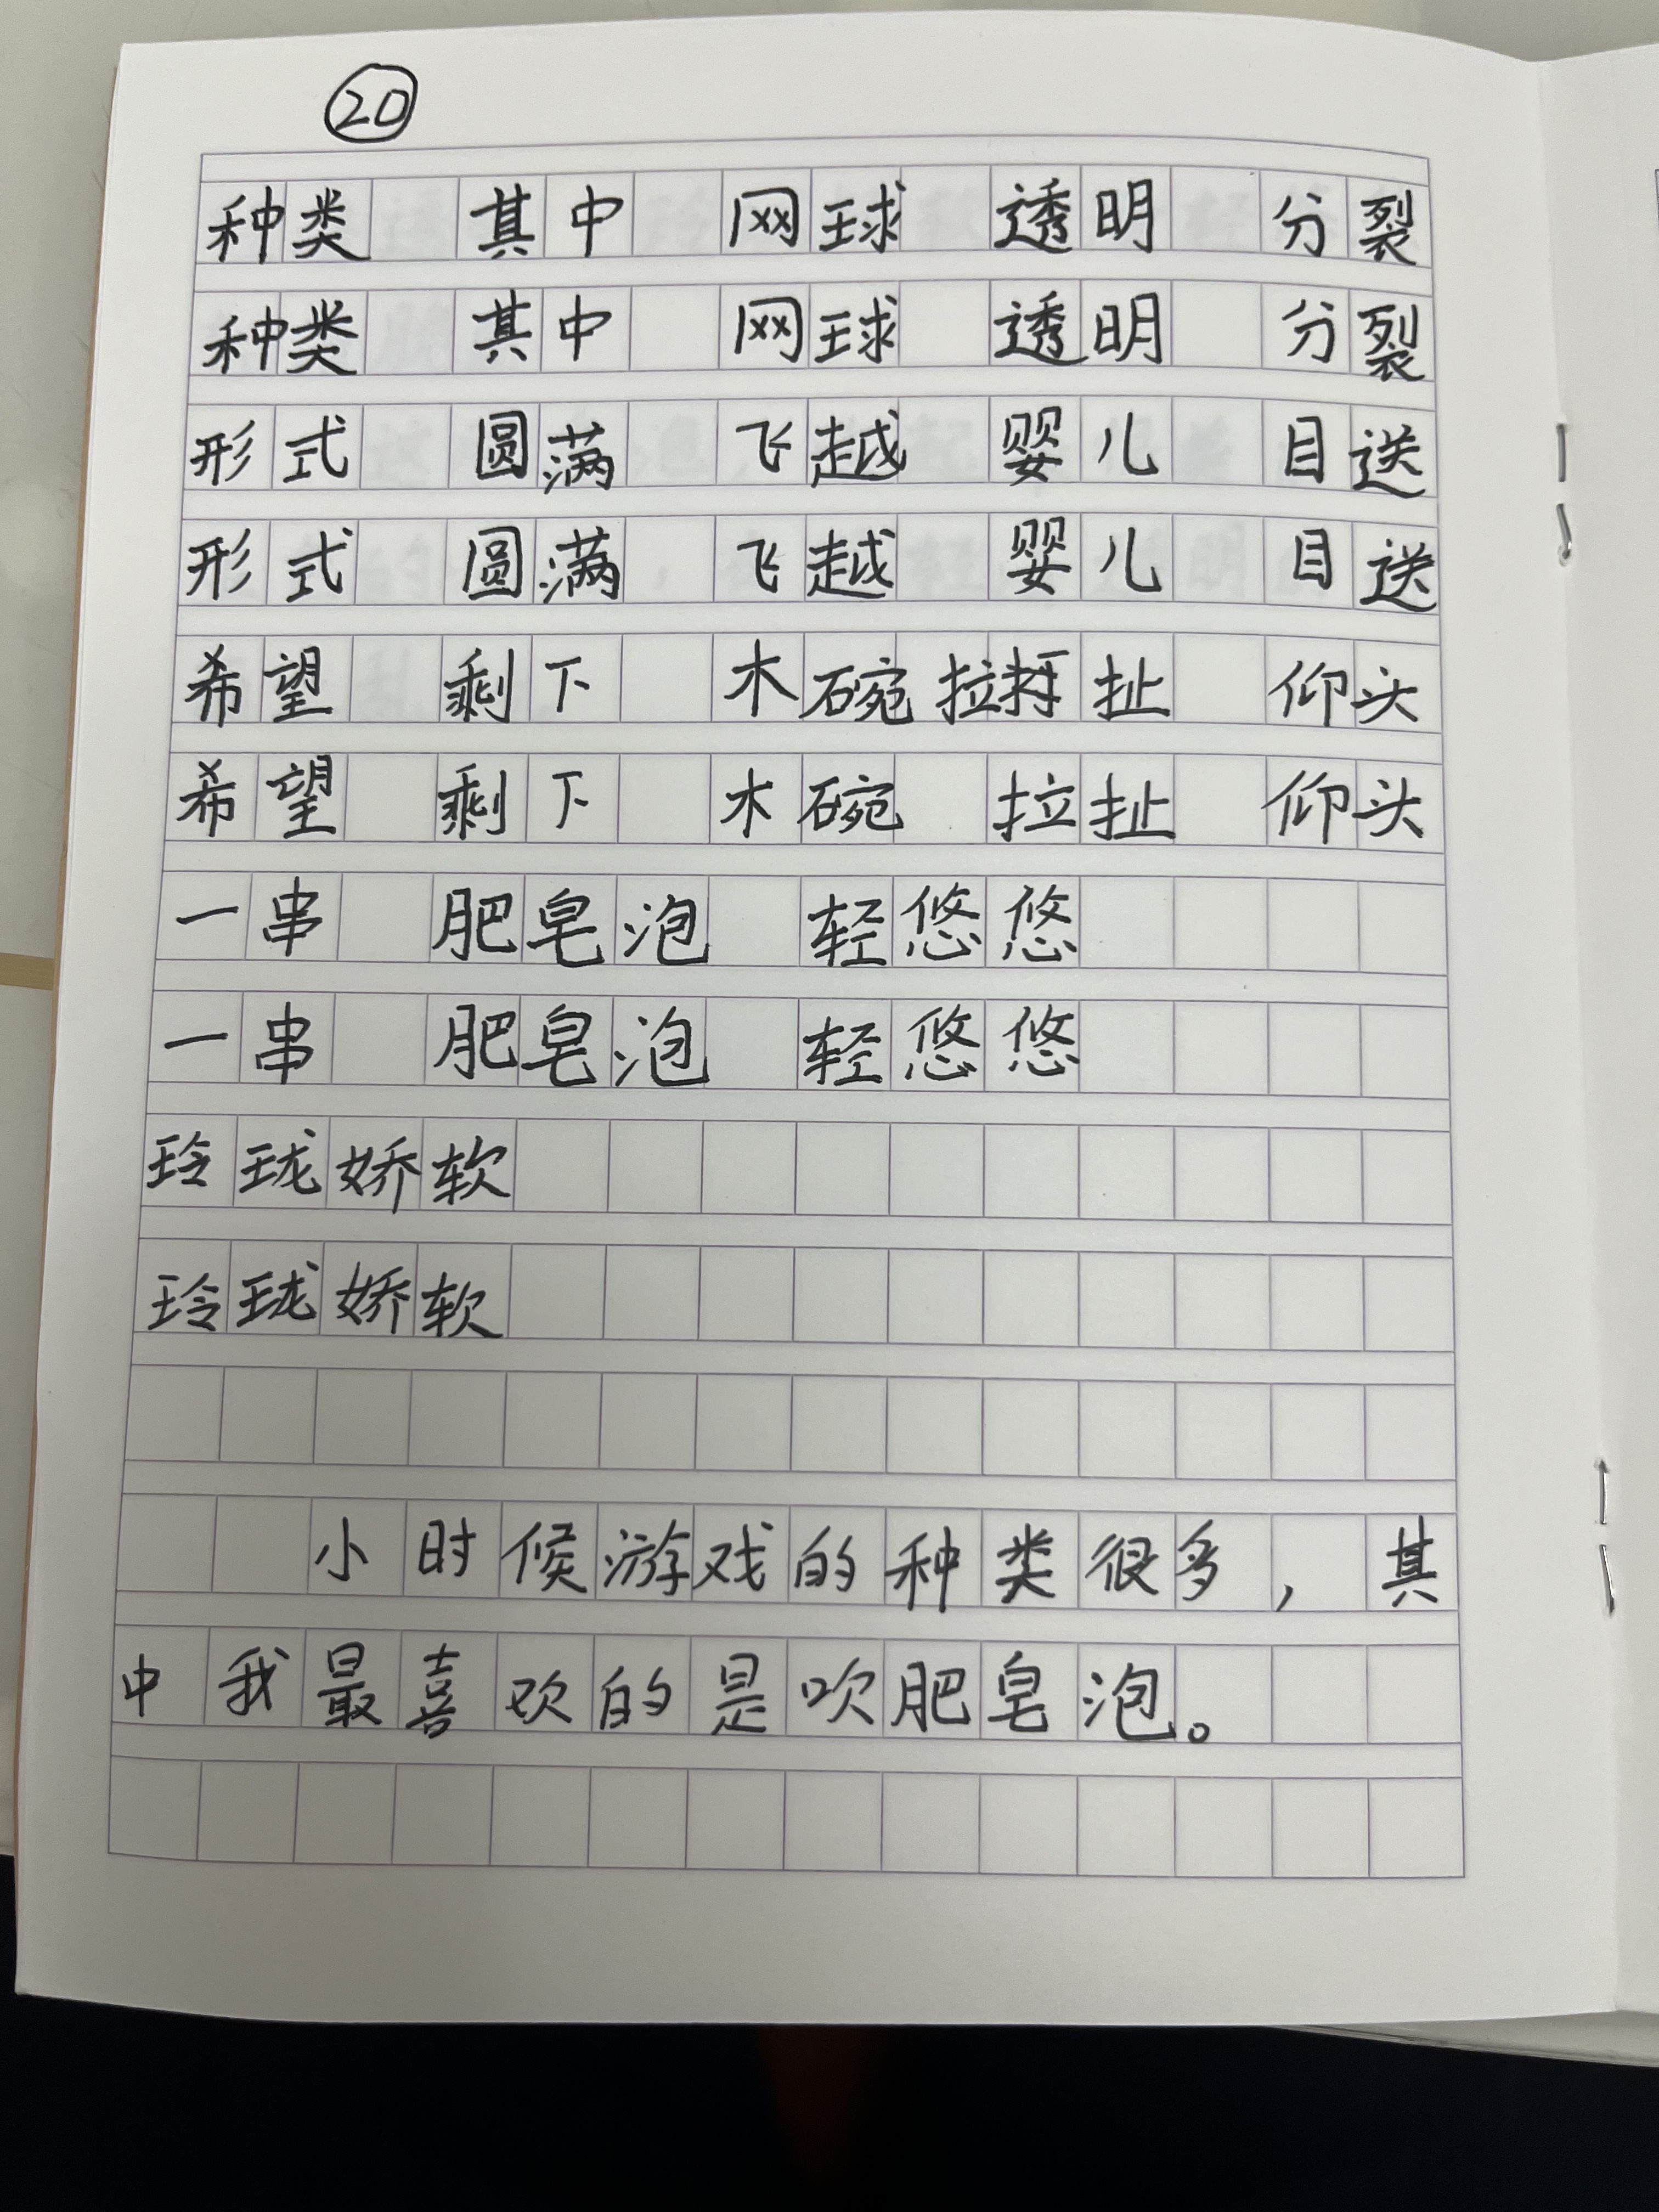 ⑳
种类 其中 网球 透明 分裂
种类 其中 网球 透明 分裂
形式 圆满 飞越 婴儿 目送
形式 圆满 飞越 婴儿 目送
希望 剩下 木碗 拉扯 仰头
希望 剩下 木碗 拉扯 仰头
一串 肥皂泡 轻悠悠
一串 肥皂泡 轻悠悠
玲珑娇软
玲珑娇软
小时候游戏的种类很多，其
中我最喜欢的是吹肥皂泡。